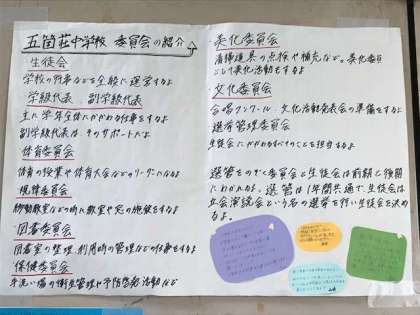 五箇荘中学校 委員会の紹介
生徒会
学校の行事などを全般に運営するよ
学級代表 副学級代表
主に学年全体にかかわる仕事をするよ
副学級代表は、そのサポートだよ
体育委員会
体育の授業や体育大会などのリーダーになるよ
規律委員会
移動教室などの時に教室や窓の施錠をするよ
図書委員会
図書室の整理、利用時の管理などの仕事をするよ
保健委員会
手洗い場の衛生管理や予防啓発活動など
美化委員会
清掃道具の点検や補充など。美化委員
として美化活動もするよ
文化委員会
合唱コンクール・文化活動発表会の準備をするよ
選挙管理委員会
生徒会にかかわるすべてのことを担当するよ
選管をのぞく委員会と生徒会は前期と後期
にわかれるよ。選管は1年間共通で、生徒会は
立会演説会という名の選挙を行い生徒会を決め
るよ。